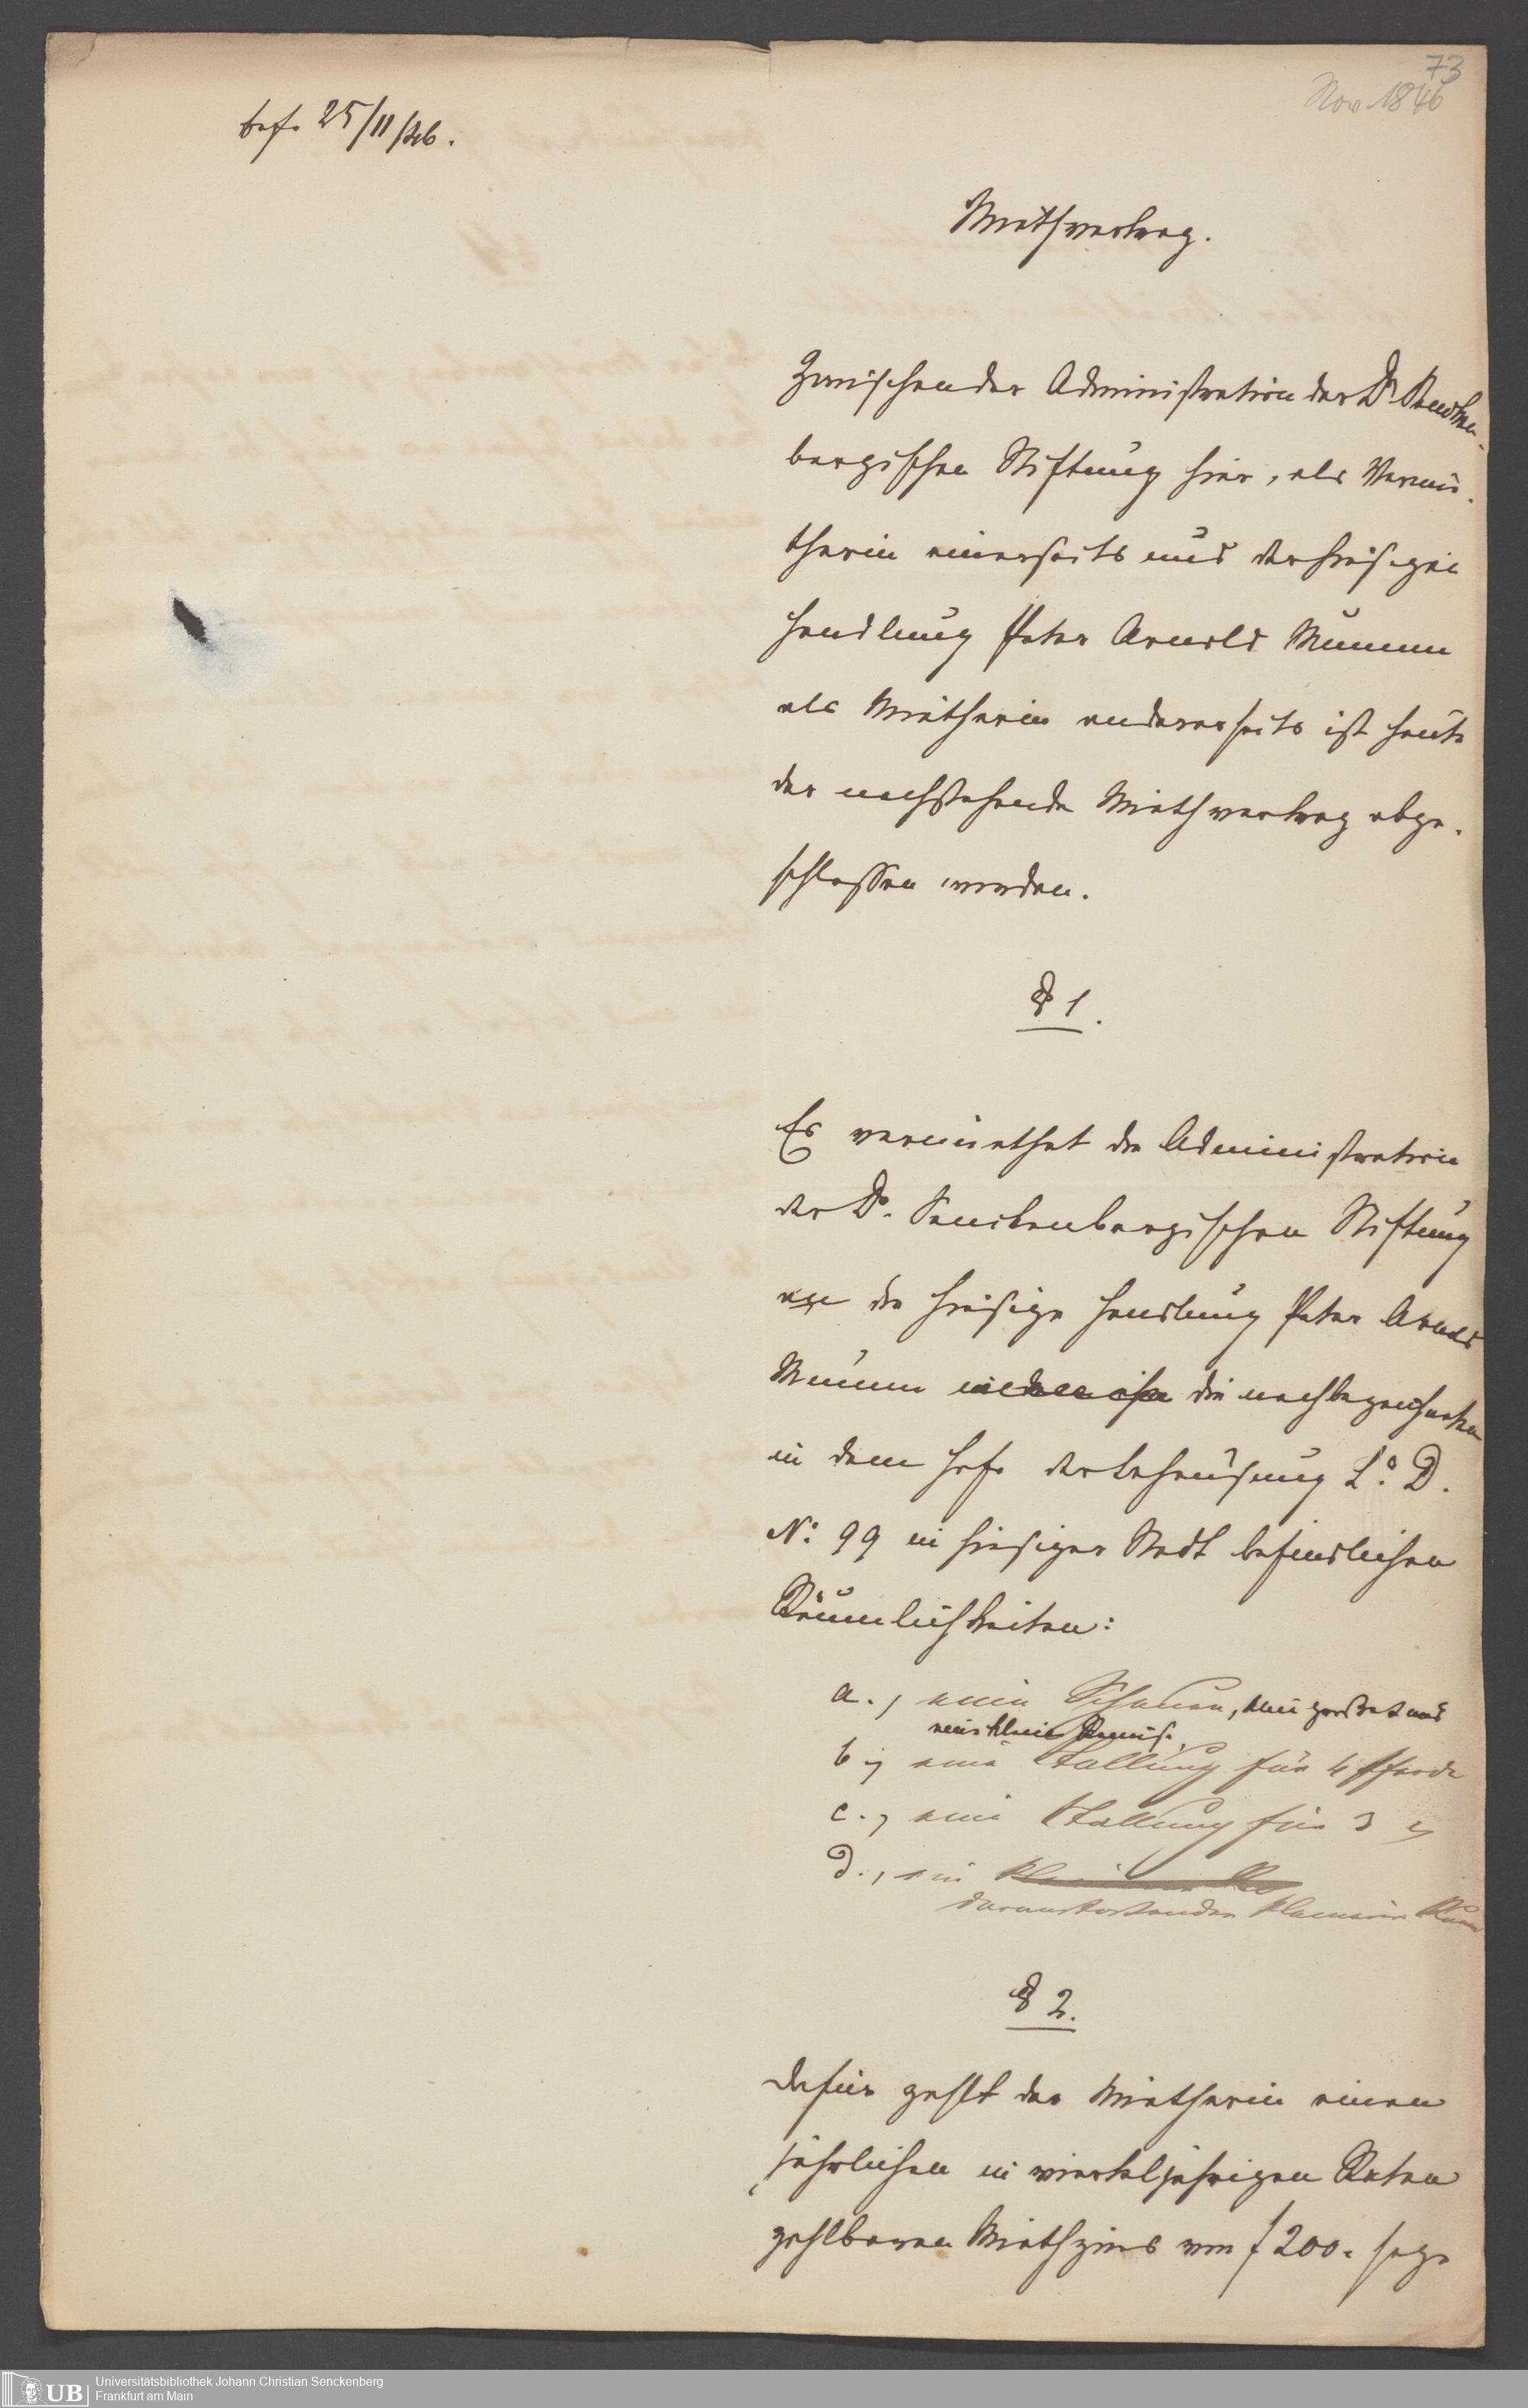 73
Nov. 1846
bes. 25/11/46.
Miethvertrag.
Zwischen der Administration der Dr Sencken-
bergischen Stiftung hier, als Vermie-
therin einerseits und der hiesigen
Handlung Peter Arnold Mumm
als Mietherin andererseits ist heute
der nachstehende Miethvertrag abge-
schlossen worden.
§ 1.
Es vermiethet die Administration
der Dr. Senckenbergischen Stiftung
an die hiesige Handlung Peter Arnold
Mumm die nachbezeichneten
in dem Hofe der Behausung Lo. D.
No: 99 in hiesiger Stadt befindlichen
Räumlichkeiten:
a., eine Scheuer, eine und
eine kleine Remise,
b., eine Stallung für 4 Pferde
c., eine Stallung für 3 "
d., ein
daranstoßender kleinerer Raum
§ 2.
Dafür zahlt der Mietherin einen
jährlichen in vierteljährigen Raten
zahlbaren Miethzins von f 200. sage
UB
Universitätsbibliothek Johann Christian Senckenberg
Frankfurt am Main